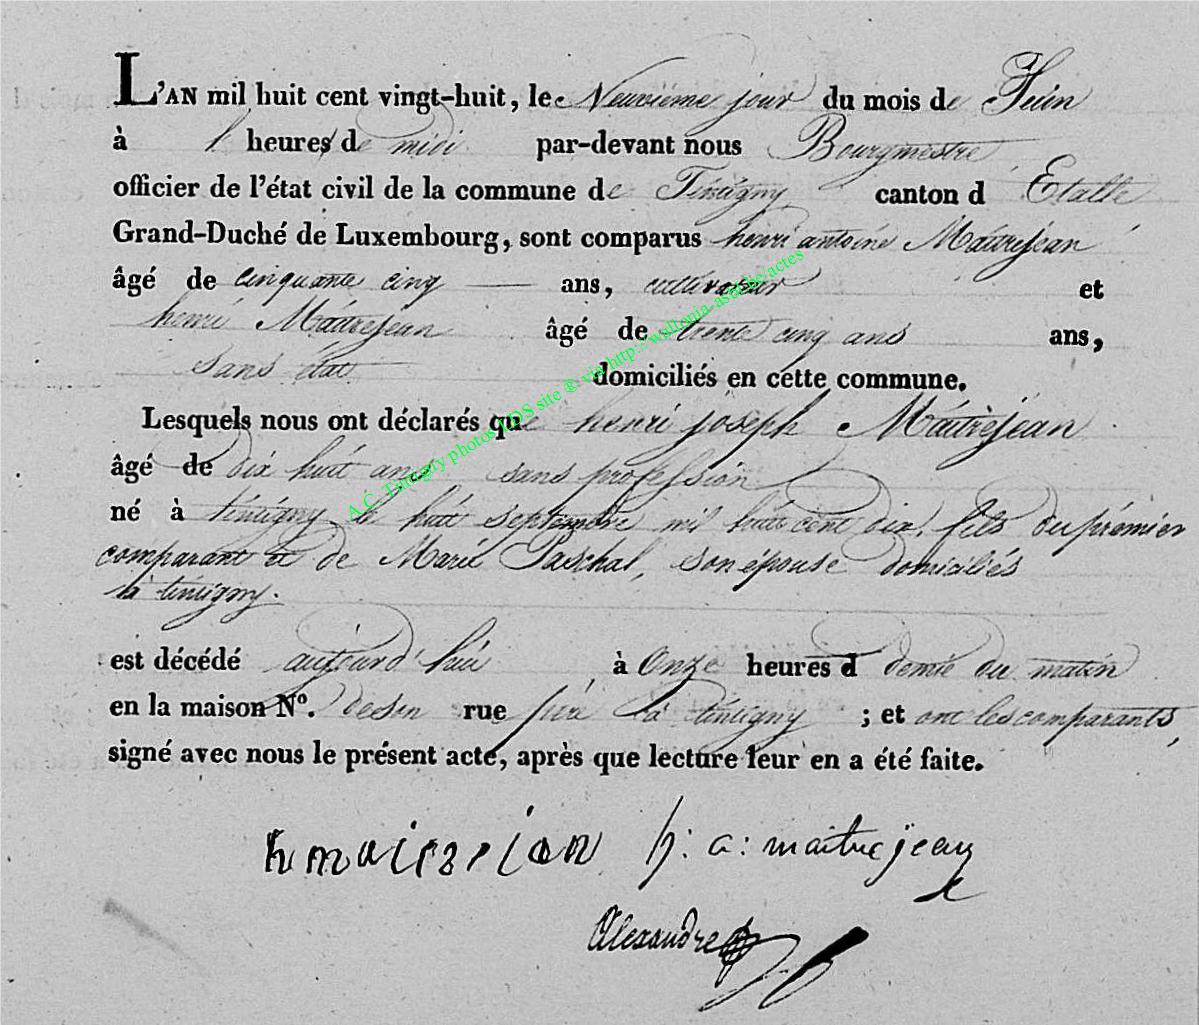 L'AN mil huit cent vingt-huit, le Neuvième jour du mois de Juin
à 1 heure de midi par-devant nous Bourgmestre
officier de l'état civil de la commune de Tintigny canton d Etalle
Grand-Duché de Luxembourg, sont comparus henri antoine Maitrejean
âgé de cinquante cinq ans, cultivateur et
henri Maitrejean âgé de trente cinq ans ans,
sans état domiciliés en cette commune.
Lesquels nous ont déclarés que henri joseph Maitrèjean
âgé de dix huit ans sans profession
né à tintigny le huit septembre mil huit cent dix, fils du prémier
comparant et de Marie Paschal, son épouse domiciliés
à tintigny.
est décédé aujourd'hui à Onze heures d demie du matin
en la maison N°. de son rue père à tintigny ; et ont les comparants,
signé avec nous le présent acte, après que lecture leur en a été faite.
h : a : maitrejean
Alexandre
A.C. Tintigny photos LDS site ® via http://wallonia-asbl.be/actes